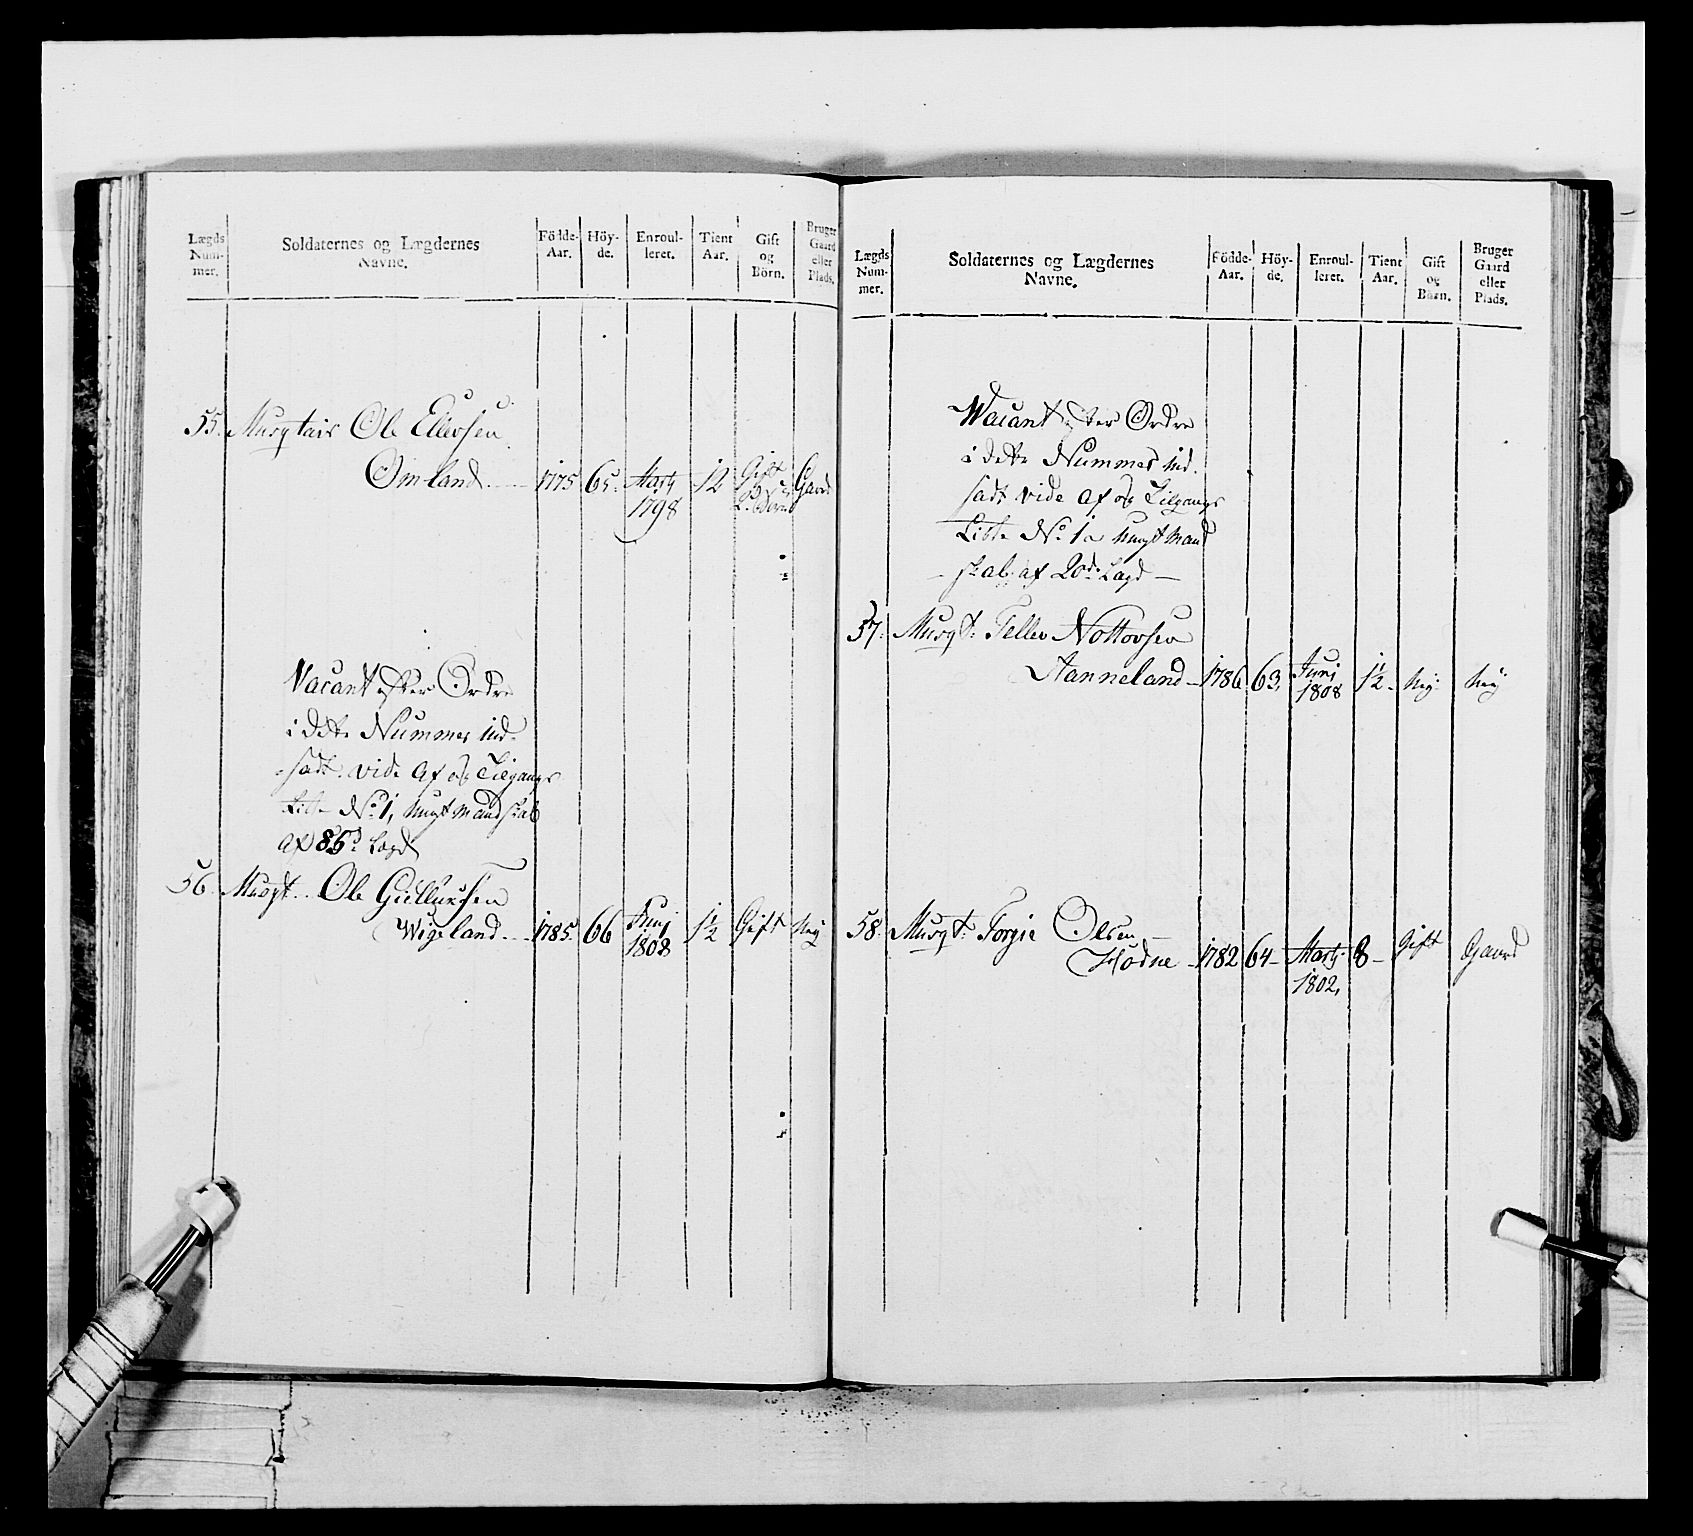 Lægds Num- mer. Soldaternes og Lægdernes Navne. Födde- Aar. Höy- de. Enroul- leret. Tient Aar. Gift og Börn. Bruger Gaard eller Plads.
55. Musqtair Ole Ellevsen
Omland 1775 65. Martj 1798 12 Gift Gaard
Vacant efter Ordre
i dette Nummer ind-
sadt. vide Af og Tilgangs
Liste No 1, mandskab
af 85d Lægd
56. Musqt. Ole Gullursen
Wigeland 1785. 66 Junj 1808 1½ Gift Ney
Lægds Num- mer. Soldaternes og Lægdernes Navne. Födde- Aar. Höy- de. Enroul- leret. Tient Aar. Gift og Börn. Bruger Gaard eller Plads.
Wacant efter Ordre
i dette Nummer ind-
sadt vide Af og Tilgangs
Liste No 1a mand
skab af 20de Lægd
57. Musqt: Tellev Nottovsen
Aanneland 1786 63. Junj 1808 1½ Ney Ney
58. Musqt: Torgie Olsen
Hodne 1782 64 Martj 1802. 8 Gift Gaard